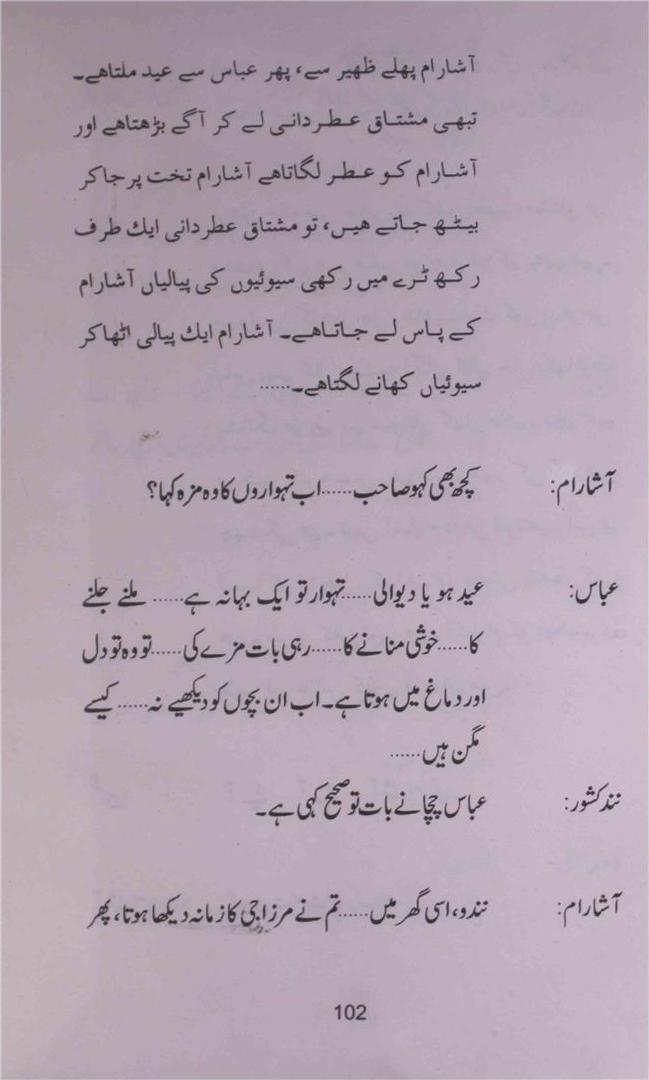 آشارام پہلے ظہیر سے، پھر عباس سے عید ملتاہے۔
تبھی مشتاق عطردانی لے کر آگے بڑھتاہے اور
آشارام کو عطر لگاتاہے آشارام تخت پرجاکر
بیٹھ جاتے ہیں، تو مشتاق عطردانی ایک طرف
رکھ ٹرے میں رکھی سیوئیوں کی پیالیاں آشارام
کے پاس لے جاتاہے۔ آشارام ایک پیالی اٹھاکر
سیوئیاں کھانے لگتاہے۔......
آشارام: کچھ بھی کہو صاحب......اب تہواروں کا وہ مزہ کہا؟
عباس: عید ہو یا دیوالی.....تہوار تو ایک بہانہ ہے...... ملنے جلنے
کا......خوشی منانے کا......رہی بات مزے کی......تو وہ تو دل
اور دماغ میں ہوتا ہے۔ اب ان بچوں کو دیکھیے نہ...... کیسے
مگن ہیں......
نند کشور: عباس چچا نے بات تو صحیح کہی ہے۔
آشارام: نندو، اسی گھر میں......تم نے مرزا جی کا زمانہ دیکھا ہوتا، پھر
102